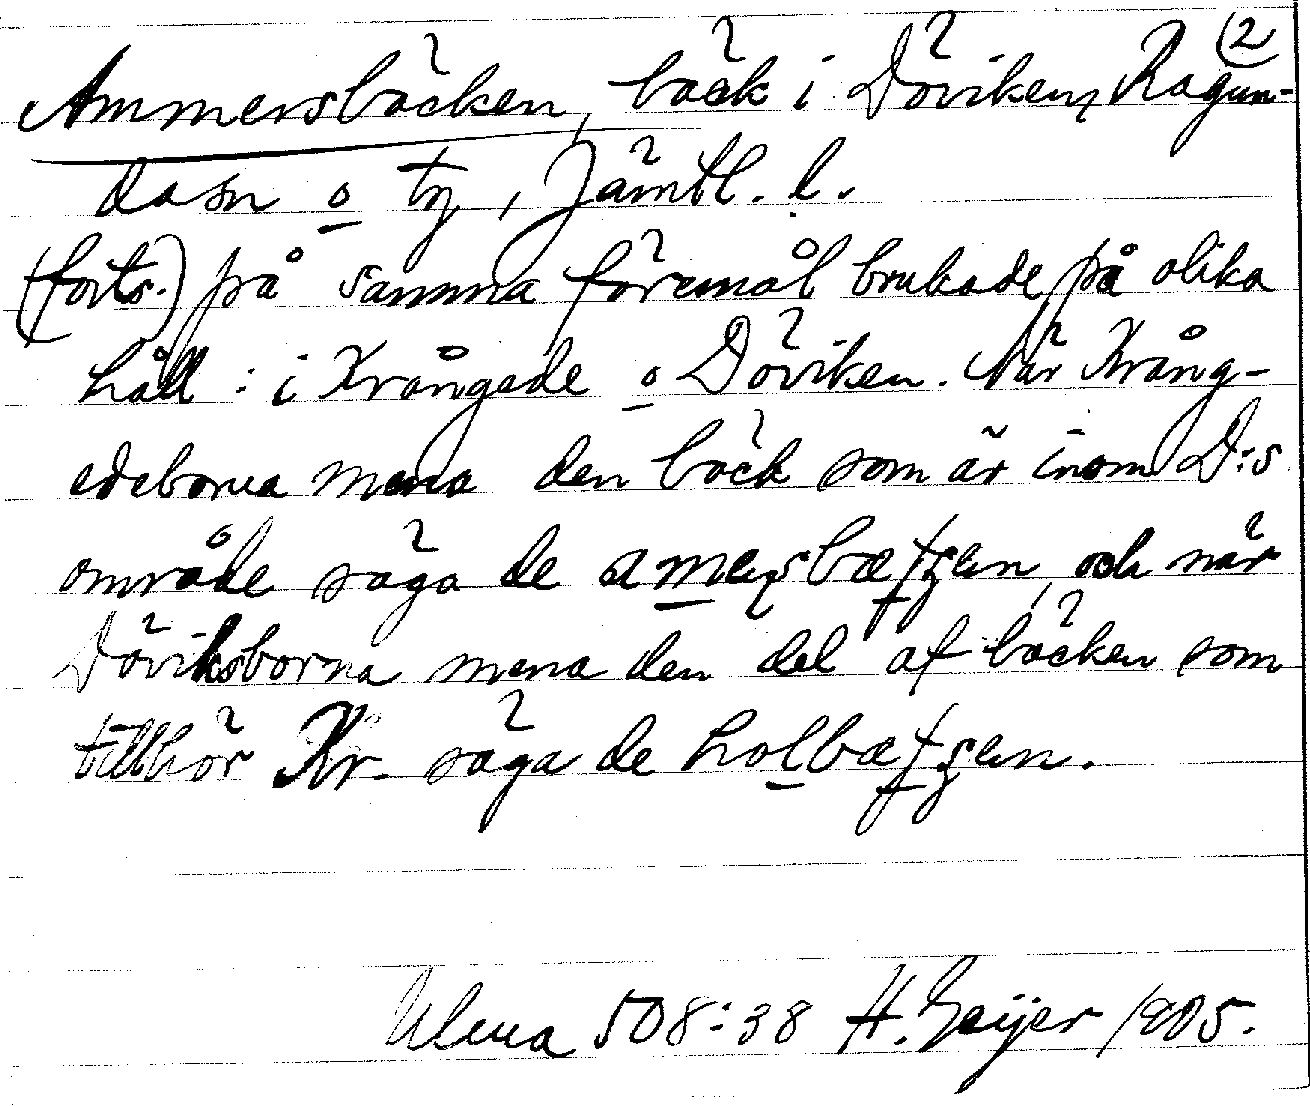 (2
Ammersbäcken, bäck i Döviken, Ragun-
da sn o ty, Jämtl. l.
(forts.) på samma föremål brukade på olika
håll: i Krångede o Döviken. När Krång-
edeborna mena den bäck som är inom D:s
område säga de och när
Döviksborna mena den del af bäcken som
tillhör Kr. säga de
Ulma 508:38 H. Geijer 1905.